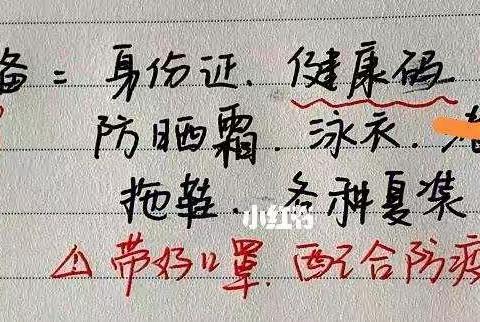 备：身份证、健康码
防晒霜、泳衣、
拖鞋、各种夏装
小红书
⚠带好口罩,配合防疫